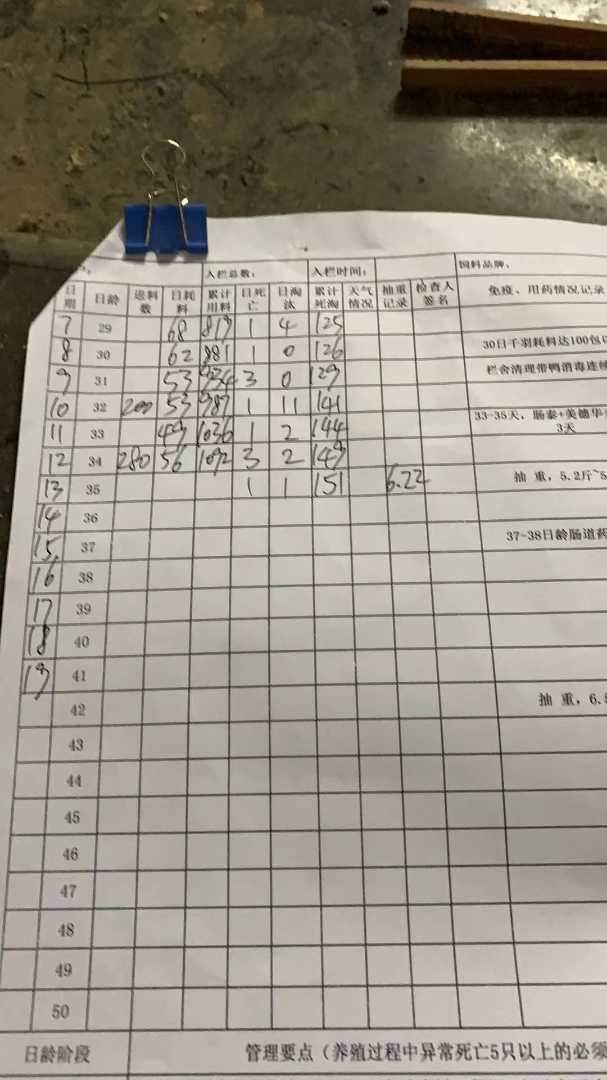 入栏总数： 入栏时间： 饲料品牌、
日期 日龄 进料数 日耗料 累计用料 日死亡 日淘汰 累计死淘 天气情况 抽重记录 检查人签名 免疫、用药情况记录
7 29 68 819 1 4 125
8 30 62 881 1 0 126 30日千羽耗料达100包
9 31 53 934 3 0 129 栏舍清理带鸭消毒连续
10 32 200 53 987 1 11 141
11 33 49 1036 1 2 144 33-35天，肠泰+美德华 3天
12 34 280 56 1092 3 2 149
13 35 1 1 151 6.22 抽 重，5.2斤~5
14 36
15 37 37-38日龄肠道药
16 38
17 39
18 40
19 41
42 抽 重，6.
43
44
45
46
47
48
49
50
日龄阶段 管理要点（养殖过程中异常死亡5只以上的必须